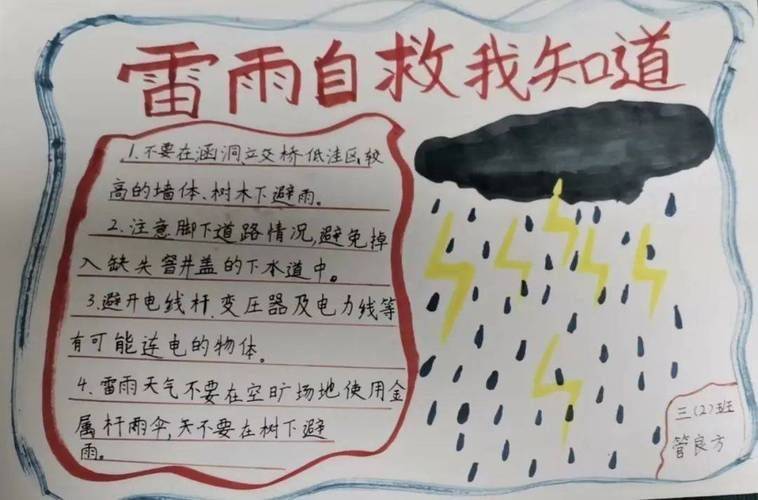 雷雨自救我知道
1.不要在涵洞立交桥低洼区较
高的墙体、树木下避雨。
2.注意脚下道路情况,避免掉
入缺失窨井盖的下水道中。
3.避开电线杆、变压器及电力线等
有可能连电的物体。
4.雷雨天气不要在空旷场地使用金
属杆雨伞,不要在树下避
雨。
三(2)班
管良方